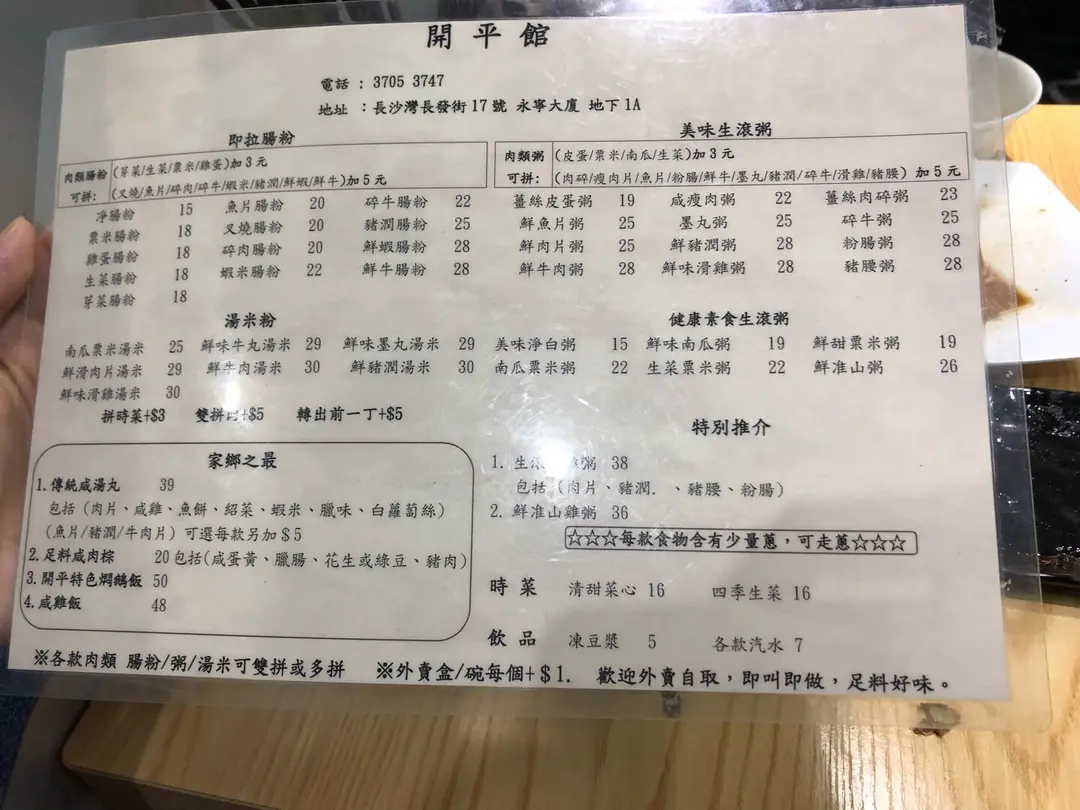 開平館
電話 : 3705 3747
地址 : 長沙灣長發街17號 永寧大廈 地下1A
即拉腸粉
肉類腸粉 (芽菜/生菜/粟米/雞蛋)加3元
可拼: (叉燒/魚片/碎肉/碎牛/蝦米/豬潤/鮮蝦/鮮牛)加5元
淨腸粉 15 魚片腸粉 20 碎牛腸粉 22
粟米腸粉 18 叉燒腸粉 20 豬潤腸粉 25
雞蛋腸粉 18 碎肉腸粉 20 鮮蝦腸粉 28
生菜腸粉 18 蝦米腸粉 22 鮮牛腸粉 28
芽菜腸粉 18
湯米粉
南瓜粟米湯米 25 鮮味牛丸湯米 29 鮮味墨丸湯米 29
鮮滑肉片湯米 29 鮮牛肉湯米 30 鮮豬潤湯米 30
鮮味滑雞湯米 30
拼時菜+$3 雙拼 +$5 轉出前一丁+$5
家鄉之最
1.傳統咸湯丸 39
包括 (肉片、咸雞、魚餅、紹菜、蝦米、臘味、白蘿蔔絲)
(魚片/豬潤/牛肉片) 可選每款另加$5
2.足料咸肉棕 20 包括(咸蛋黃、臘腸、花生或綠豆、豬肉)
3.開平特色焗鵝飯 50
4.咸雞飯 48
美味生滾粥
肉類粥 (皮蛋/粟米/南瓜/生菜)加3元
可拼: (肉碎/瘦肉片/魚片/粉腸/鮮牛/墨丸/豬潤/碎牛/滑雞/豬腰) 加5元
薑絲皮蛋粥 19 咸瘦肉粥 22 薑絲肉碎粥 23
鮮魚片粥 25 墨丸粥 25 碎牛粥 25
鮮肉片粥 25 鮮豬潤粥 28 粉腸粥 28
鮮牛肉粥 28 鮮味滑雞粥 28 豬腰粥 28
健康素食生滾粥
美味淨白粥 15 鮮味南瓜粥 19 鮮甜粟米粥 19
南瓜粟米粥 22 生菜粟米粥 22 鮮准山粥 26
特別推介
1. 生滾 粥 38
包括 (肉片、豬潤. 、豬腰、粉腸)
2. 鮮准山雞粥 36
☆☆☆每款食物含有少量蔥，可走蔥☆☆☆
時菜 清甜菜心 16 四季生菜 16
飲品 凍豆漿 5 各款汽水 7
※各款肉類 腸粉/粥/湯米可雙拼或多拼 ※外賣盒/碗每個+$1. 歡迎外賣自取，即叫即做，足料好味。